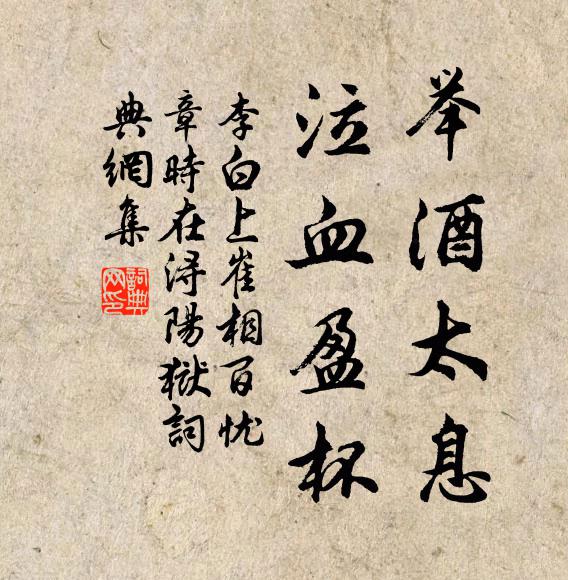 举酒太息
泣血盈杯
李白上崔相百忧
章時在浔陽獄詞
典網集
詞典
网印